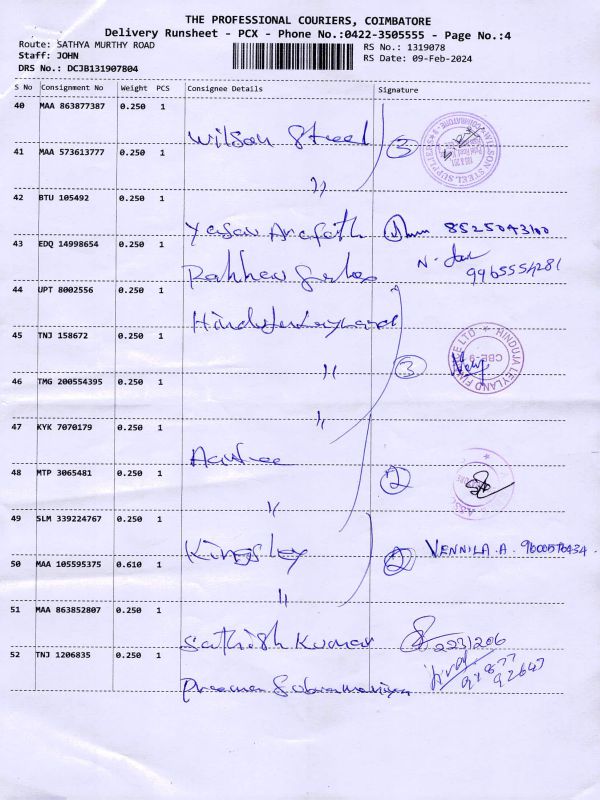 THE PROFESSIONAL COURIERS, COIMBATORE
Delivery Runsheet - PCX - Phone No.:0422-3505555 - Page No.:4
Route: SATHYA MURTHY ROAD
RS No.: 1319078
Staff: JOHN
RS Date: 09-Feb-2024
DRS No.: DCJB131907804
S No Consignment No Weight PCS Consignee Details Signature
40 MAA 863877387 0.250 1
Wilson Steel 3
WILSON STEEL SUPPLIERS
41 MAA 573613777 0.250 1
"
42 BTU 105492 0.250 1
Yasar Arafath 8525043100
43 EDQ 14998654 0.250 1
N. 9965554281
44 UPT 8002556 0.250 1
Hinduja Leyland
45 TNJ 158672 0.250 1
" 3
HINDUJA LEYLAND FINANCE LTD
CBE-9
46 TMG 200554395 0.250 1
"
47 KYK 7070179 0.250 1
2
48 MTP 3065481 0.250 1
"
49 SLM 339224767 0.250 1
Kingsley 2 VENNILA.A. 9600576434
50 MAA 105595375 0.610 1
"
51 MAA 863852807 0.250 1
Sathish Kumar 223/206
52 TNJ 1206835 0.250 1
97877
92647